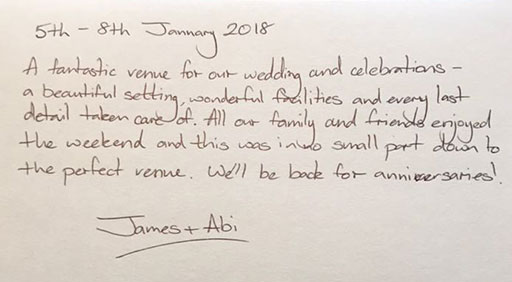 5th - 8th January 2018
A fantastic venue for our wedding and celebrations -
a beautiful setting, wonderful facilities and every last
detail taken care of. All our family and friends enjoyed
the weekend and this was in no small part down to
the perfect venue. We'll be back for anniversaries!
James + Abi